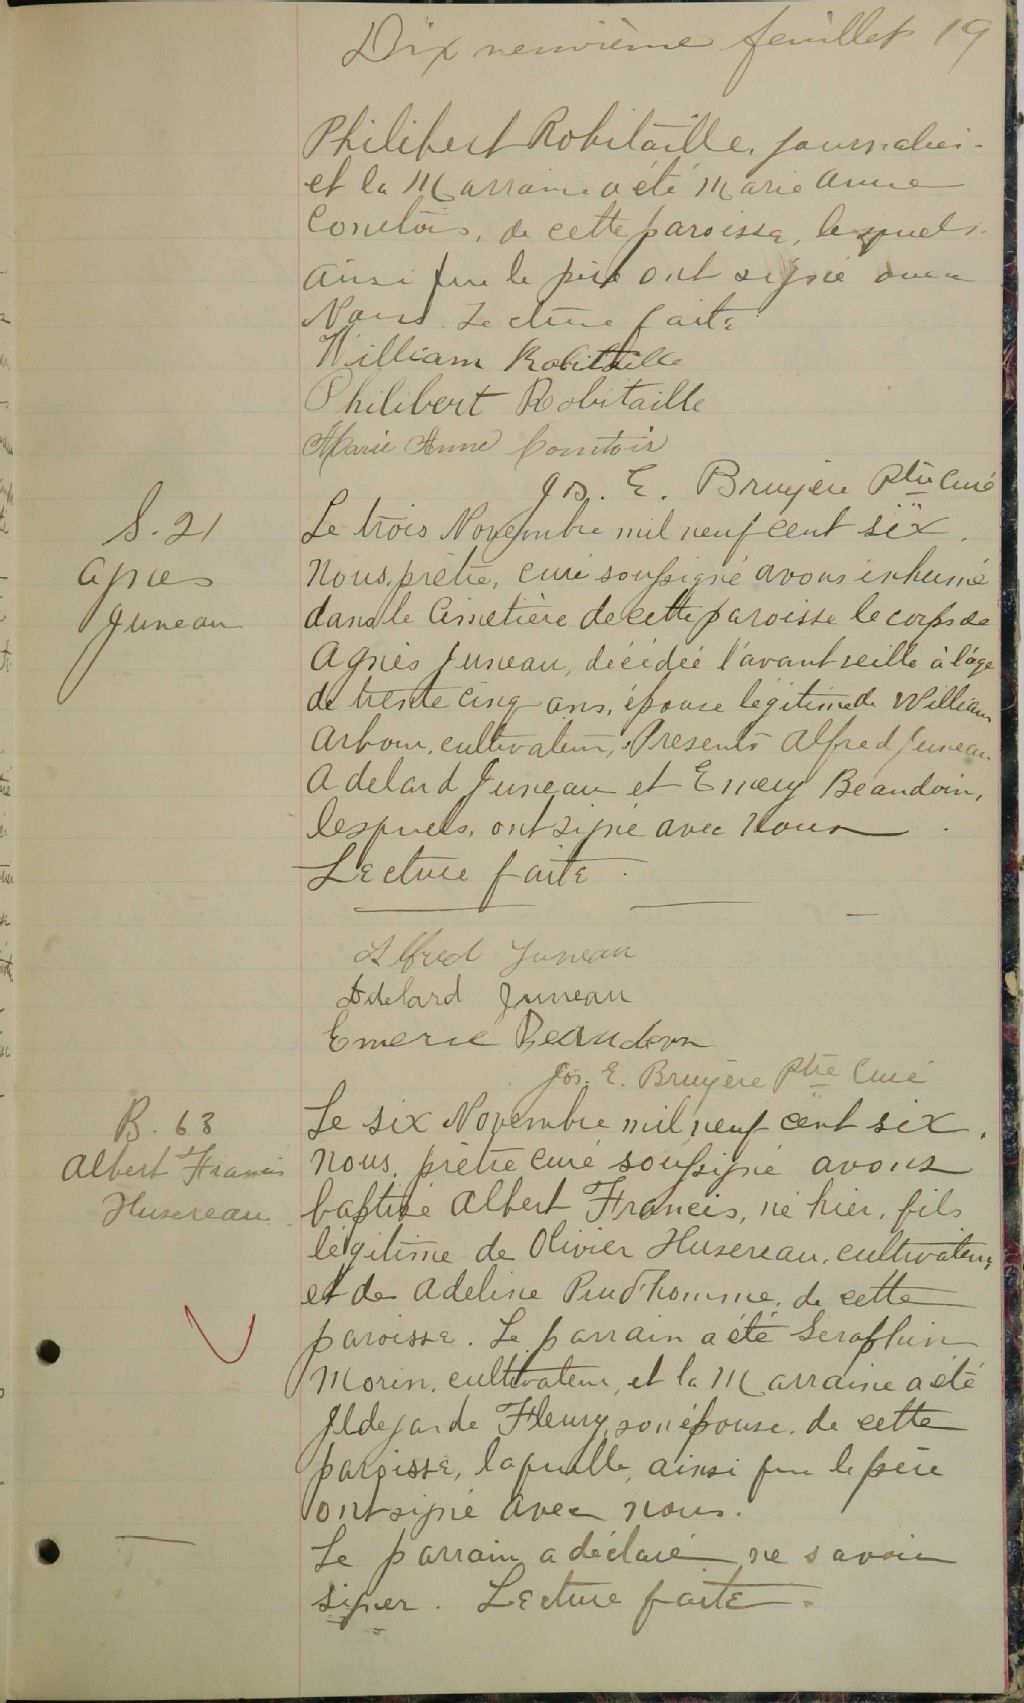 Dix neuvième feuillet 19
Philibert Robitaille, journalier
et la Marraine a été Marie Anne
Comtois, de cette paroisse, lesquels
ainsi que le père ont signé avec
Nous. Lecture faite
William Robitaille
Philibert Robitaille
Marie Anne Comtois
Jos. E. Bruyère Ptre Curé
S. 21
Agnes
Juneau
Le trois Novembre mil neuf cent six.
Nous, prêtre, curé soussigné avons inhumé
dans le Cimetière de cette paroisse le corps de
Agnès Juneau, décédée l'avant veille à l'âge
de trente cinq ans, épouse légitime de William
Arbour, cultivateur, Presents Alfred Juneau
Adelard Juneau et Emery Beaudoin,
lesquels, ont signé avec Nous
Lecture faite.
Alfred Juneau
Adelard Juneau
Emerie Beaudoin
Jos. E. Bruyère Ptre Curé
B. 63
Albert Francis
Husereau
Le six Novembre mil neuf cent six.
Nous, prêtre curé soussigné avons
baptisé Albert Francis, né hier, fils
légitime de Olivier Husereau, cultivateur,
et de Adeline Prud'homme, de cette
paroisse. Le parrain a été Seraphin
Morin, cultivateur, et la Marraine a été
Ildegarde Fleury, son épouse, de cette
paroisse, laquelle, ainsi que le père
ont signé avec nous.
Le parrain a déclaré ne savoir
signer. Lecture faite.